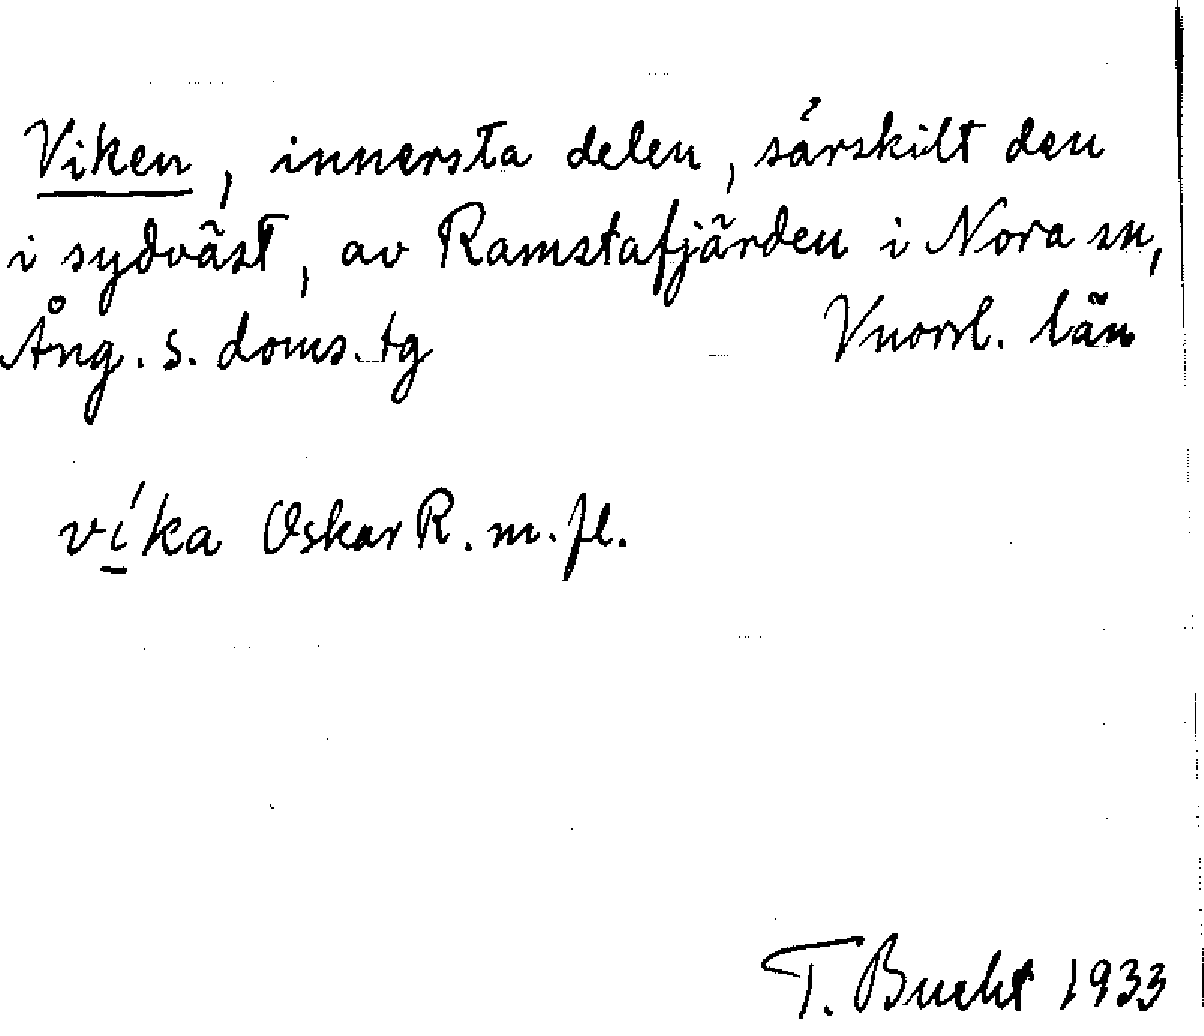 Viken, innersta delen, särskilt den
i sydväst, av Ramstafjärden i Nora sn,
Ång. s. doms. tg Vnorrl. län
ví̱ka Oskar R. m. fl.
T. Bucht 1933